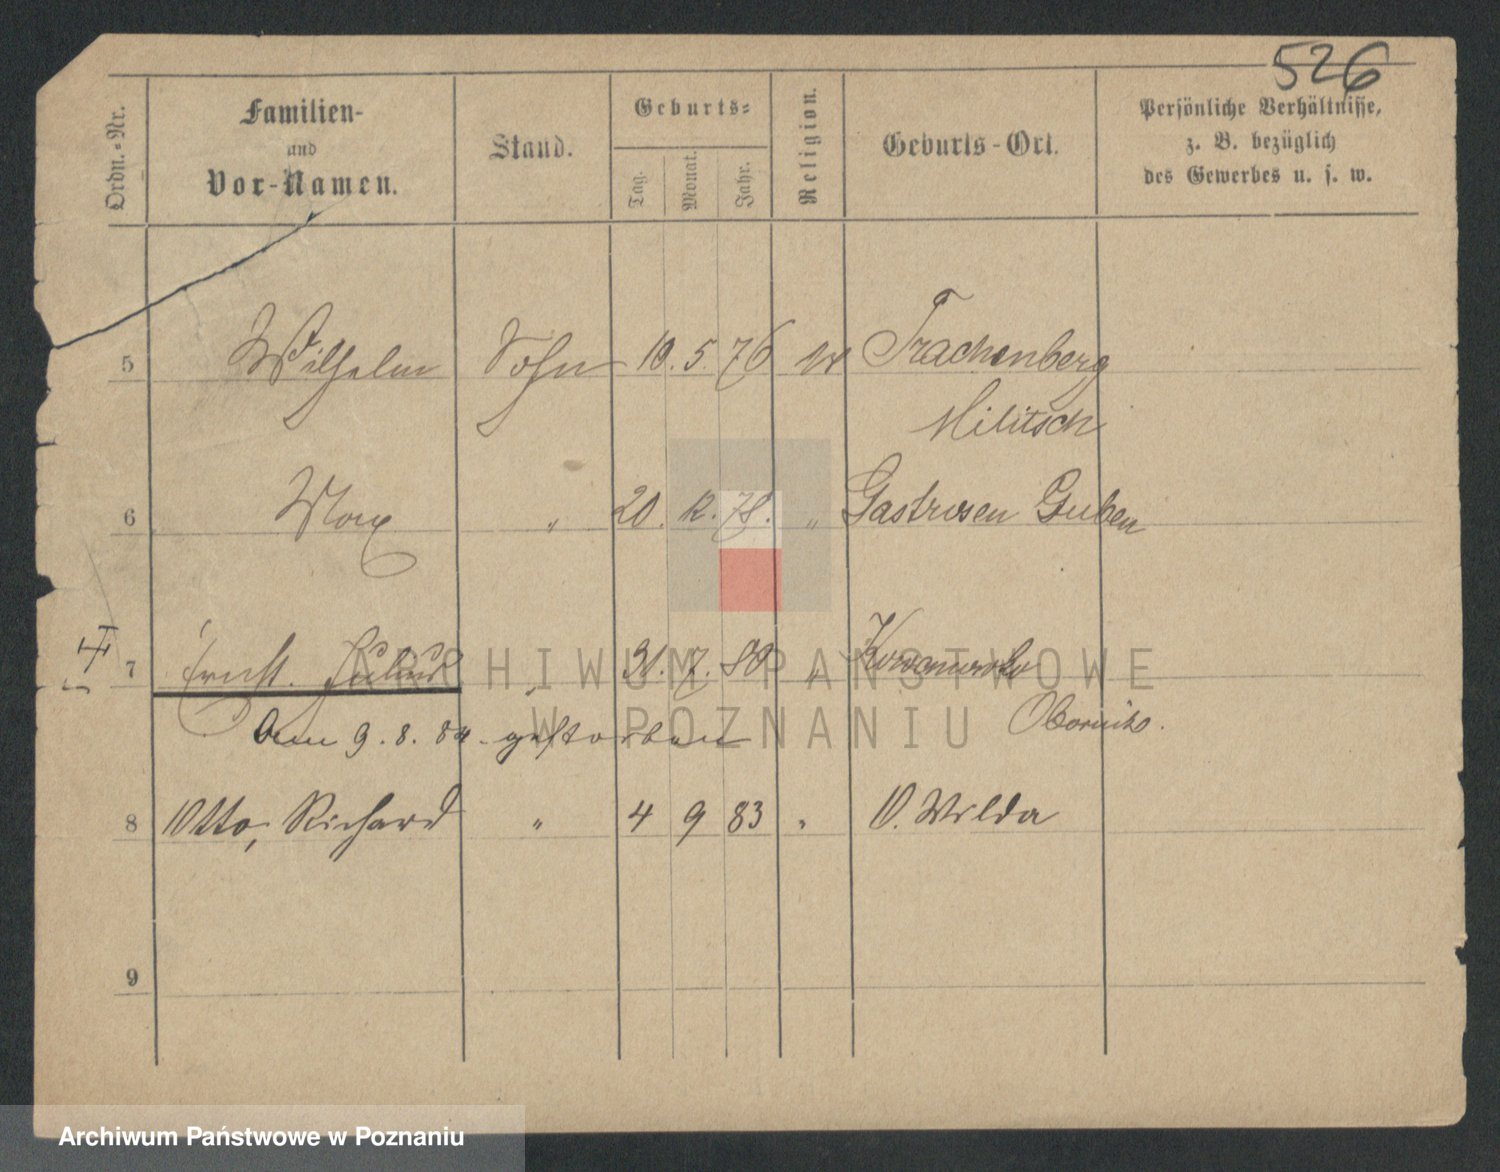 526
Ordn.-Nr.
Familien-
und
Vor-Namen.
Stand.
Geburts-
Tag.
Monat.
Jahr.
Religion.
Geburts-Ort.
Persönliche Verhältnisse,
z. B. bezüglich
des Gewerbes u. s. w.
5 Wilhelm Sohn 10. 5. 76 Trachenberg
Militsch
6 Max " 20. 12. 78. " Gastrosen Guben
7 Ernst. Julius " 31. 7. 80 "
Obornik.
Am 9. 8. 84 gestorben
8 Otto, Richard " 4 9 83 " O. Wilda
9
ARCHIWUM PAŃSTWOWE
W POZNANIU
Archiwum Państwowe w Poznaniu